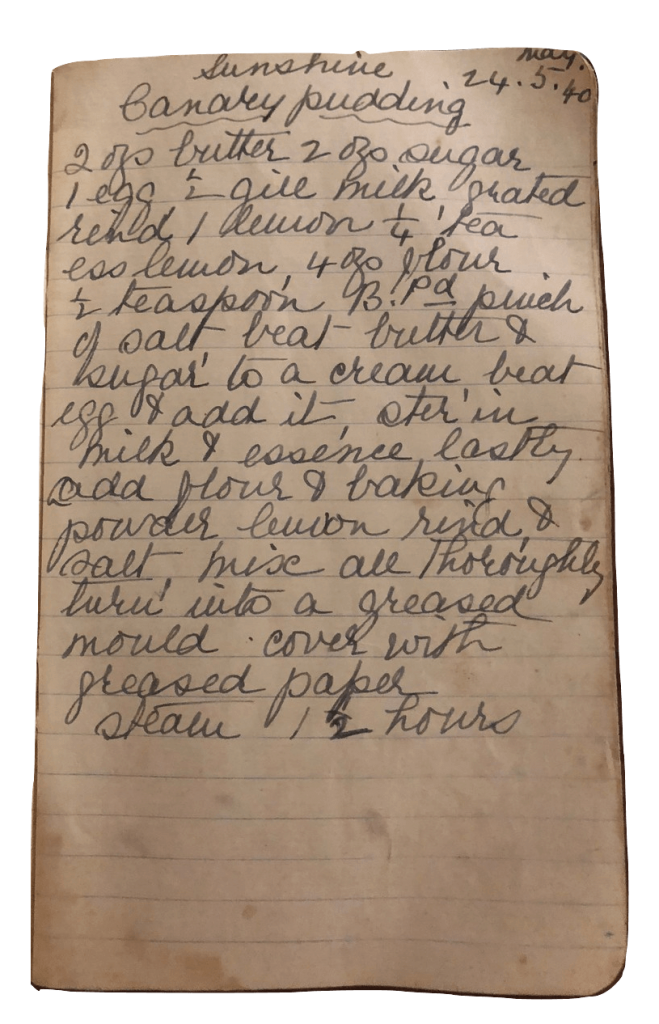 Sunshine
May.
24.5.40
Canary pudding
2 ozs butter 2 ozs sugar
1 egg ½ gill milk grated
rind 1 lemon ¼ tea
ess lemon, 4 ozs flour
½ teaspoon B.Pd pinch
of salt beat butter &
sugar to a cream beat
egg & add it ster in
milk & essence lastly
add flour & baking
powder lemon rind, &
salt, mix all thoroughly
turn into a greased
mould . cover with
greased paper
steam 1 ½ hours